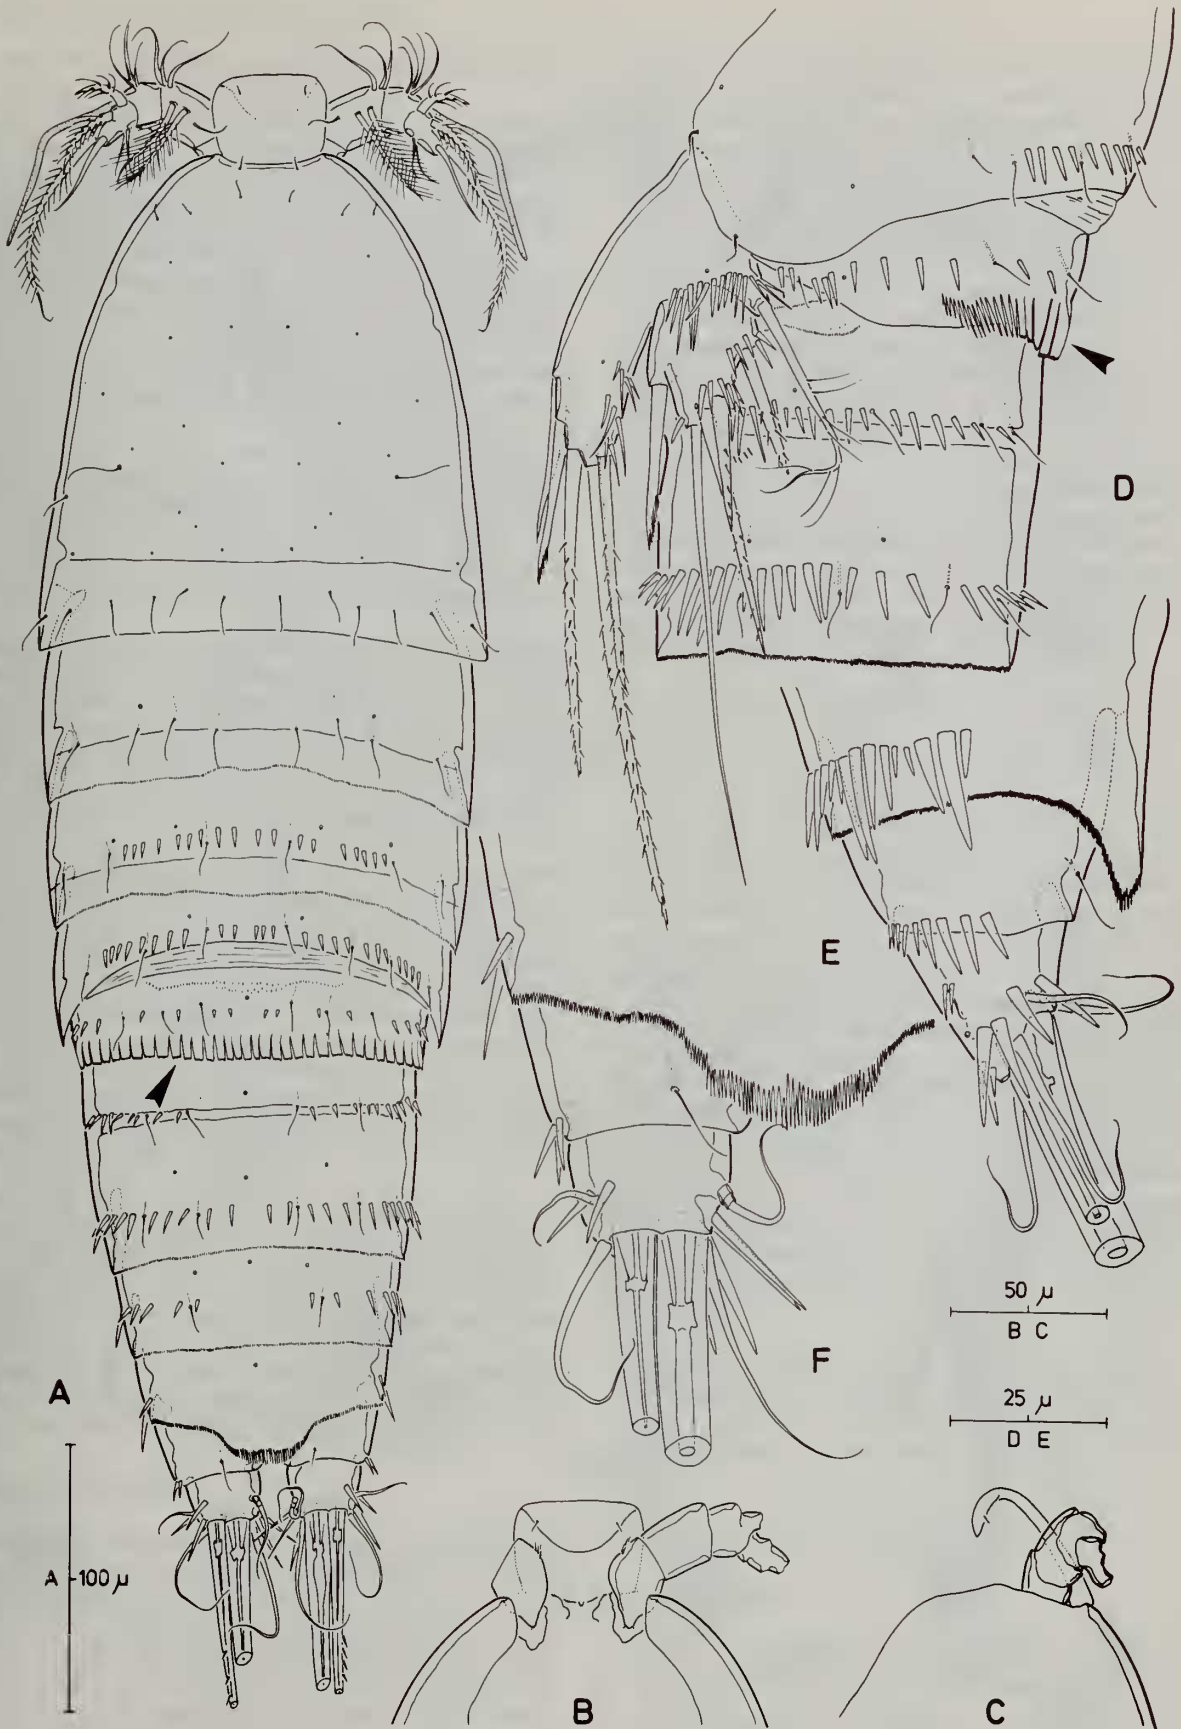 D
E
50 μ
B C
F
25 μ
D E
A
A 100 μ
B
C